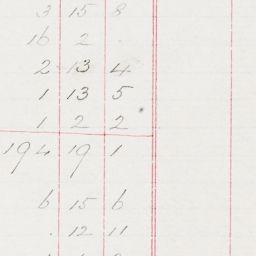 3 15 8
16 2 .
2 13 4
1 13 5
1 2 2
194 19 1
6 15 6
. 12 11